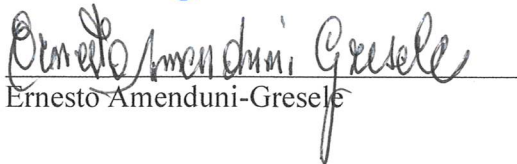 Ernesto Amenduni Gresele
Ernesto Amenduni-Gresele